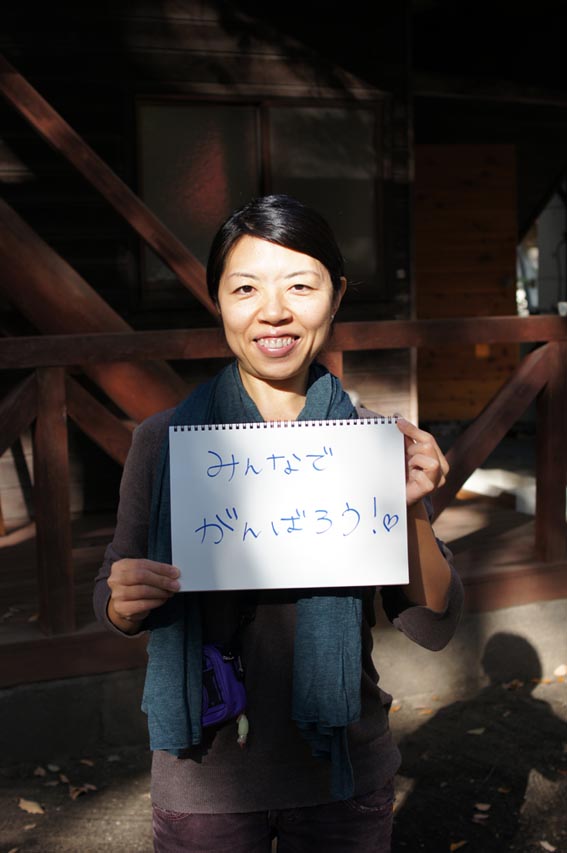 みんなで
がんばろう!♡